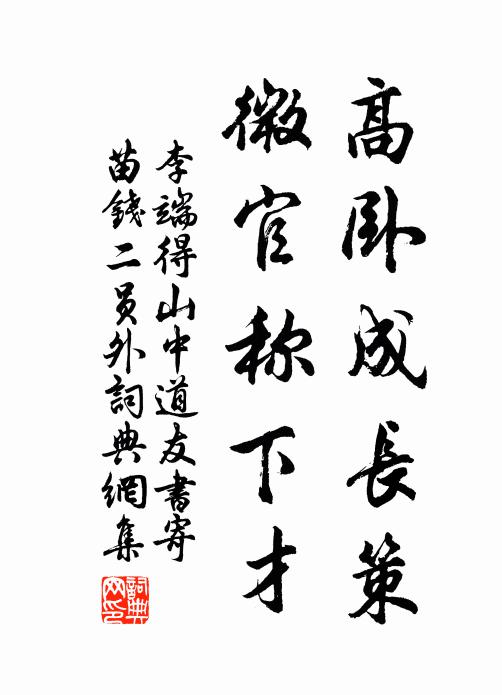 高卧成長策
微官称下才
李端得山中道友書寄
苗錢二員外詞典網集
詞典網印